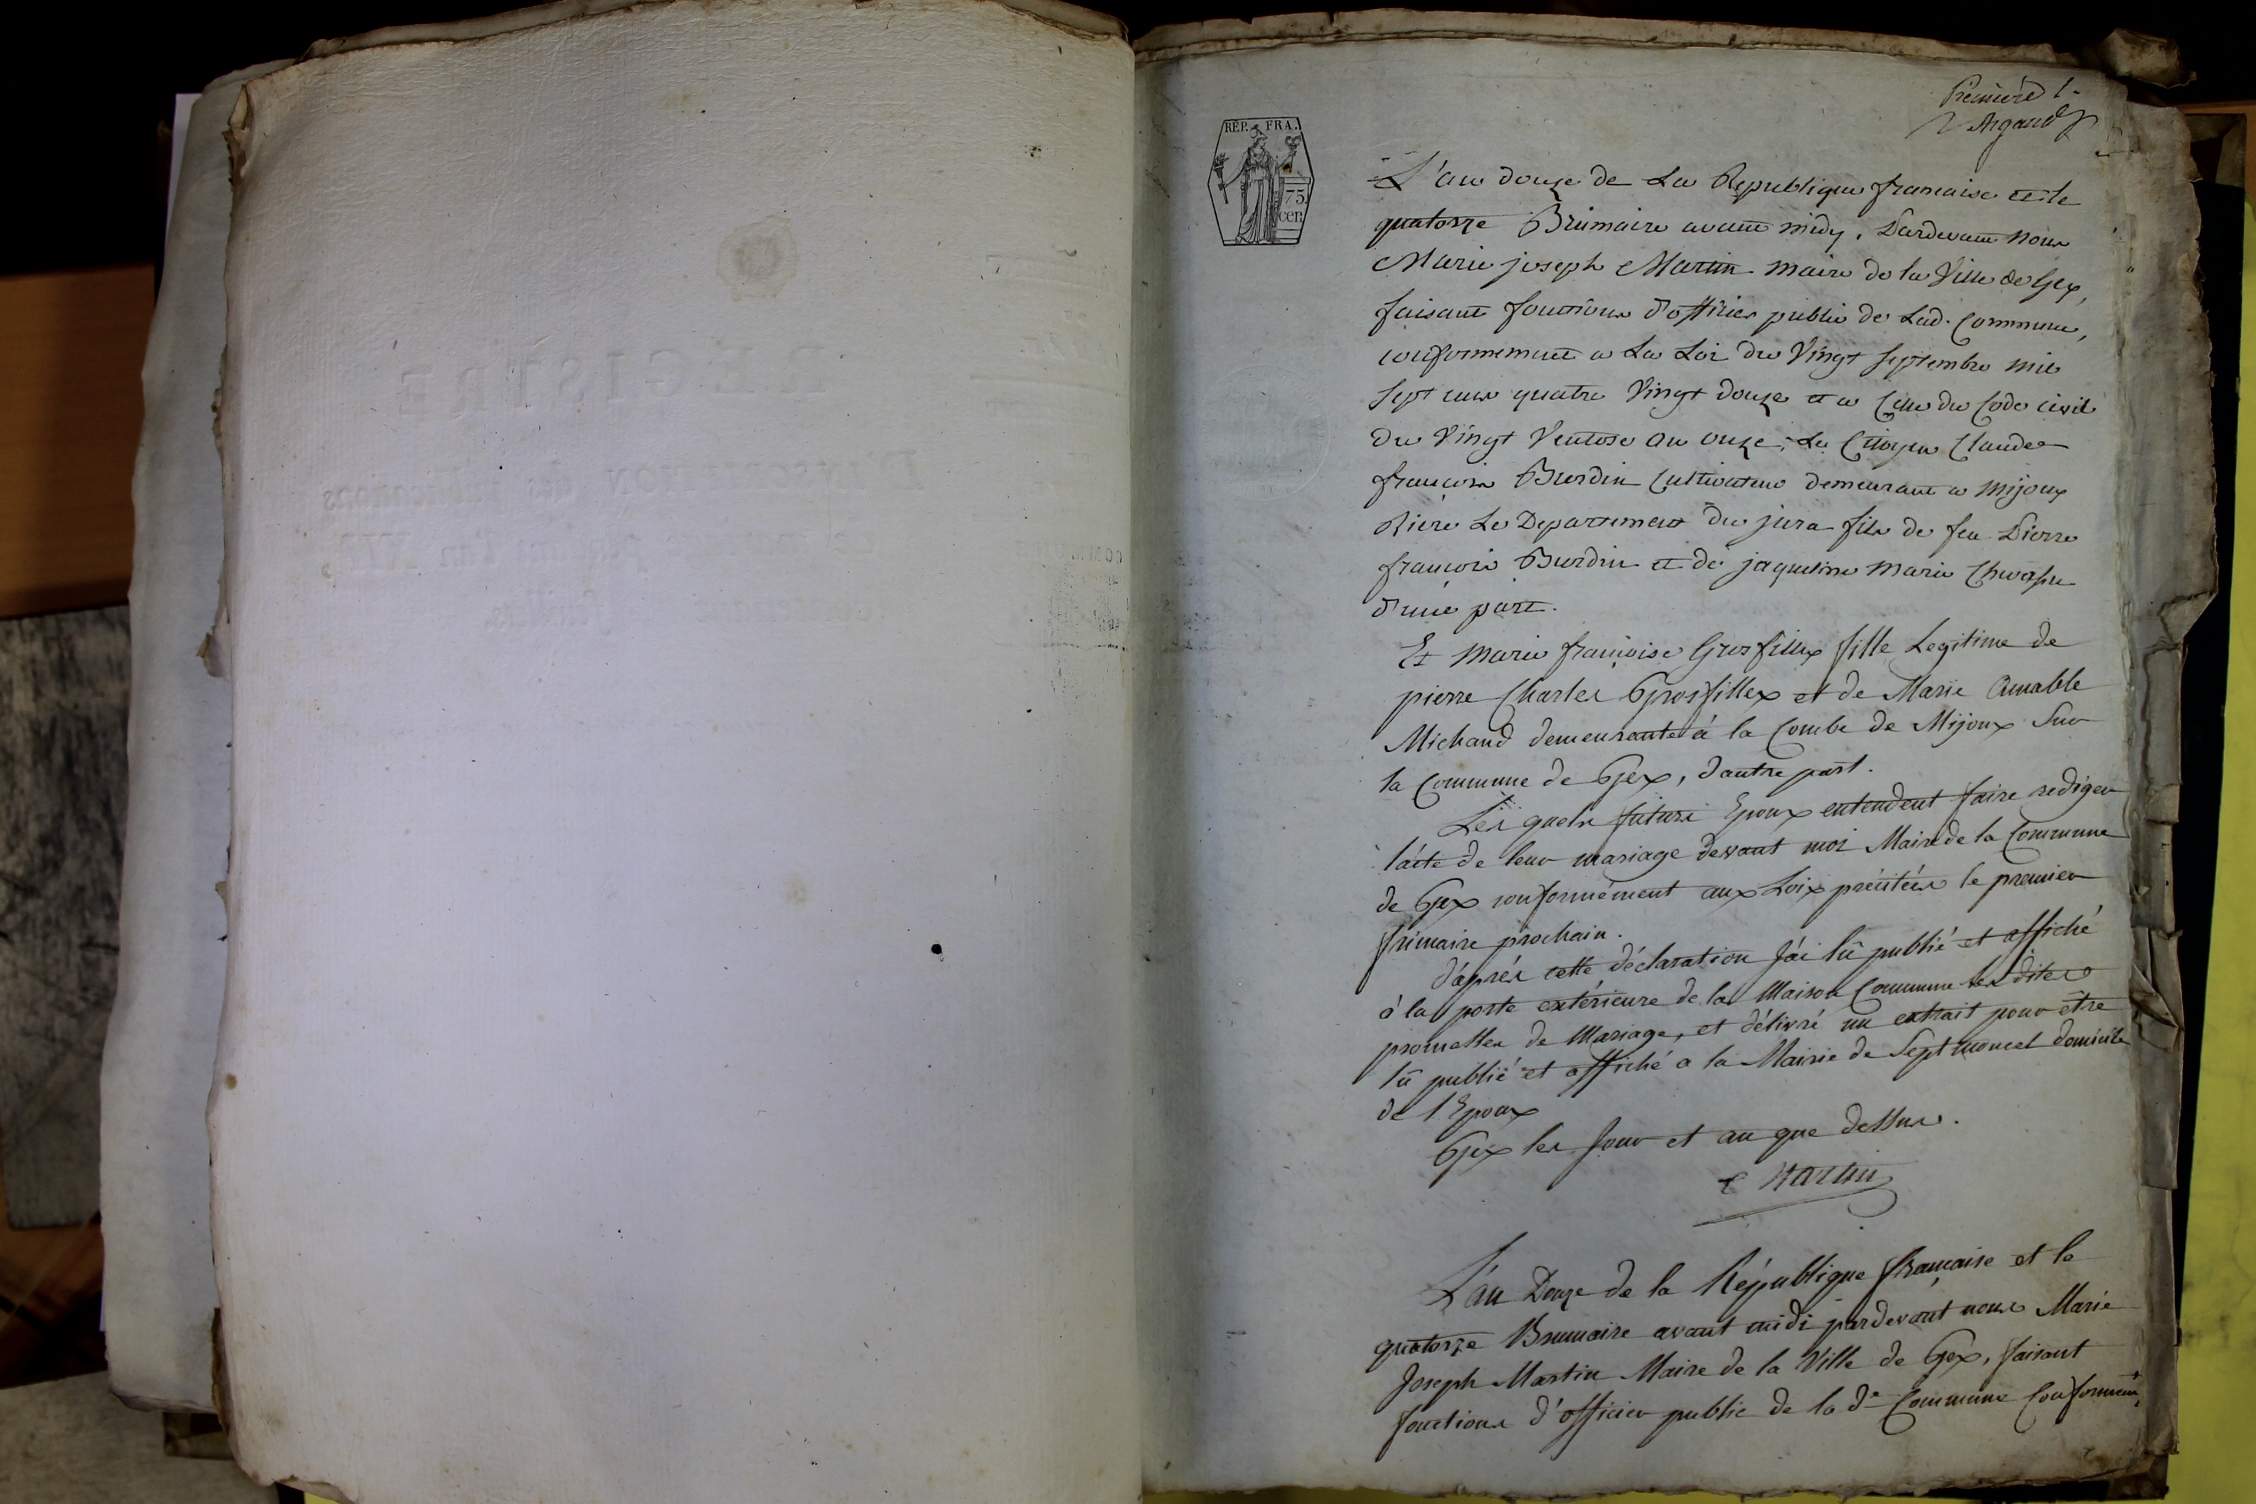 Première f.
Argand
REP. FRA.
75
cen.
L'an douze de La Republique francaise et le
quatorze Brumaire avant midy, Pardevant nous
Marie joseph Martin maire de la Ville de Gex,
faisant fonctions d'officier public de Lad. Commune,
conformement a La Loi du Vingt septembre mil
sept cens quatre Vingt douze et a Celle du Code civil
du Vingt Ventose an onze; Le Citoyen Claude
francois Burdin Cultivateur demeurant a mijoux
Riere Le Departement du jura fils de feu Pierre
francois Burdin et de jaqueline marie
d'une part.
Et marie françoise Grosfillex fille Legitime de
pierre Charles Grosfillex et de Marie Aimable
Michaud demeurante à la Combe de Mijoux Sur
la Commune de Gex, d'autre part.
Les quels futurs Epoux entendent faire rediger
l'acte de leur mariage devant moi Maire de la Commune
de Gex conformément aux Loix précitées le premier
frimaire prochain.
d'après cette déclaration J'ai lû publié et affiché
à la porte extérieure de la Maison Commune les dites
promesses de Mariage, et délivré un extrait pour être
lû publié et affiché a la Mairie de Septmoncel domicile
de l'Epoux
Gex les jour et an que dessus.
Martin
L'an Douze de la République française et le
quatorze Brumaire avant midi pardevant nous Marie
Joseph Martin Maire de la Ville de Gex, faisant
fonctions d'officier public de la de Commune Conformémt
REGISTRE